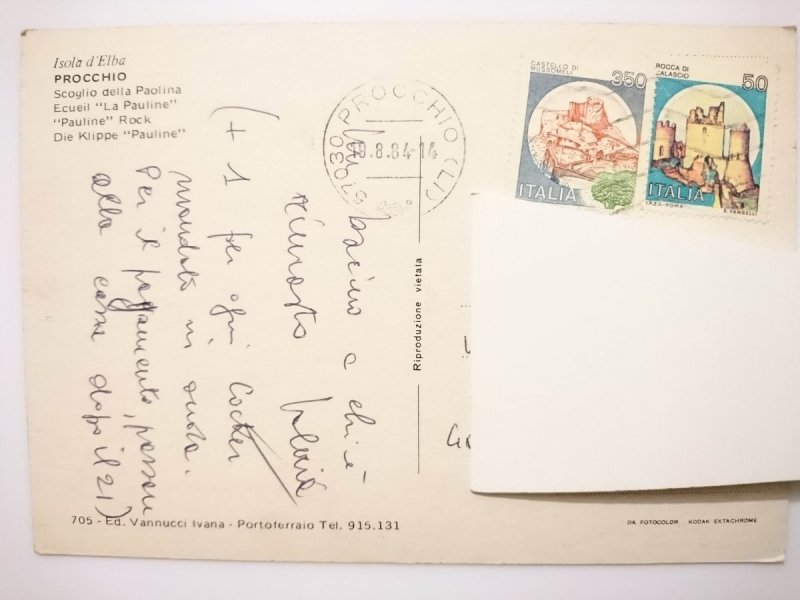 Isola d'Elba
PROCCHIO
Scoglio della Paolina
Ecueil "La Pauline"
"Pauline" Rock
Die Klippe "Pauline"
57030 PROCCHIO (LI)
8.8.84-14
CASTELLO DI
MUSSOMELI
350
ITALIA
ROCCA DI
CALASCIO
50
ITALIA
I.P.Z.S. ROMA
E. VANGELLI
bacino a chi è
rimasto
(+ 1 per ogni Cocker
mandato in onda.
Per il pagamento, passare
alla cassa dopo il 21)
Riproduzione vietata
705 - Ed. Vannucci Ivana - Portoferraio Tel. 915.131
DA FOTOCOLOR - KODAK EKTACHROME